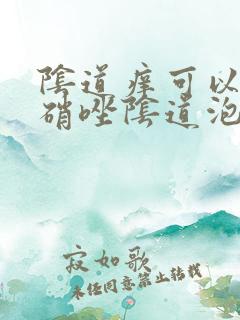 陰道痒可以
硝唑陰道泡
寂如歌
未经同意禁止转载